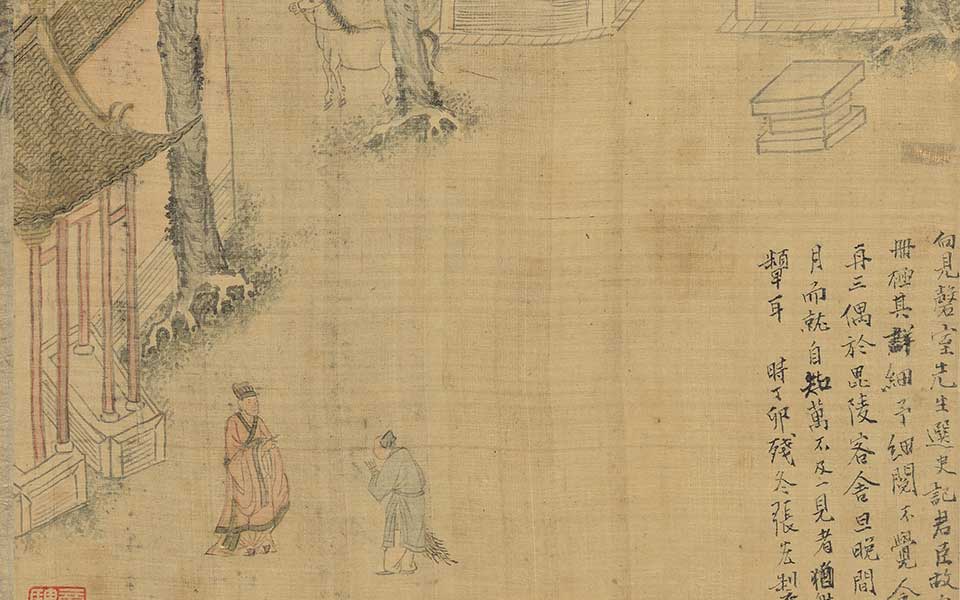 向見磬室先生選史記君臣故
冊極其詳細予細閱不覺
再三偶於毘陵客舍旦晚間
月而就自知萬不及一見者猶
顰耳
時丁卯殘冬張宏制